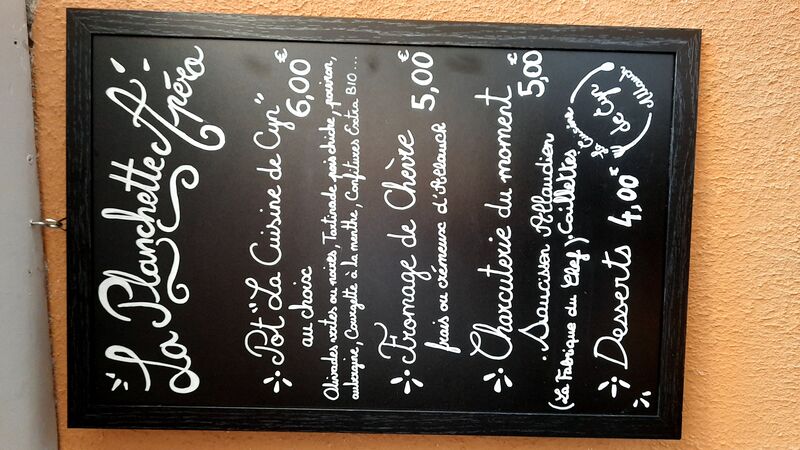 La Planchette Apéro
Pot "La Cuisine de Cyn"
au choix 6,00€
Olivades vertes ou noires, Tartinade pois chiche, poivron,
aubergine, Courgette à la menthe, Confitures Extra BIO...
Fromage de Chèvre
frais ou crémeux d'Allauch 5,00€
Charcuterie du moment
. Saucisson Allaudien 5,00€
(La Fabrique du Chef). Caillettes
Desserts 4,00€
La Cuisine
de Cyn
Allauch